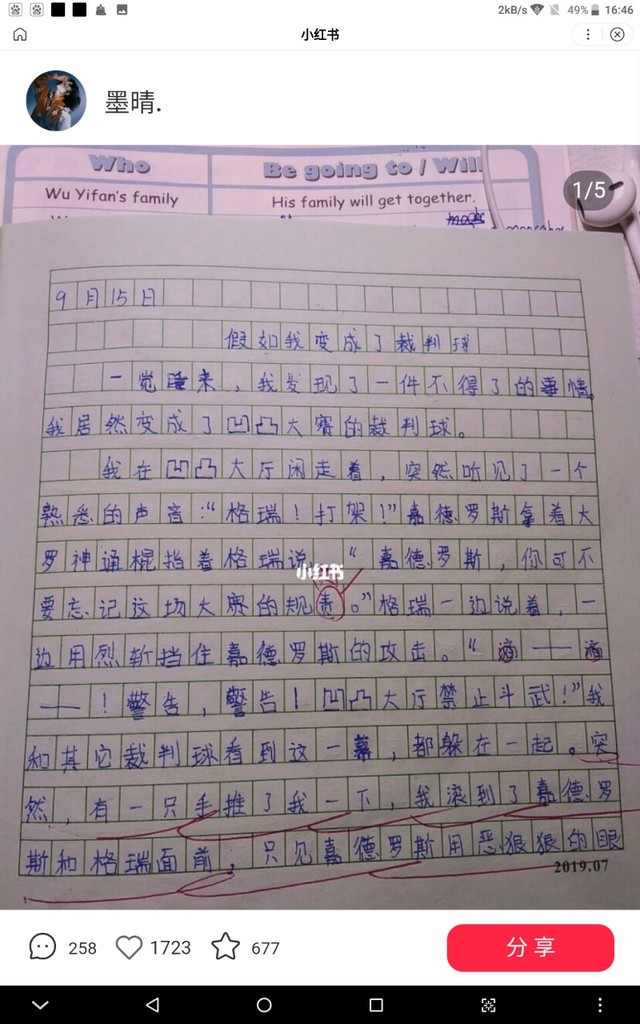 2kB/s 49% 16:46
小红书
墨晴.
1/5
Who Be going to / Will
Wu Yifan's family His family will get together.
9月15日
假如我变成了裁判球
一觉睡来，我发现了一件不得了的事情。
我居然变成了凹凸大赛的裁判球。
我在凹凸大厅闲走着，突然听见了一个
熟悉的声音：“格瑞！打架！”嘉德罗斯拿着大
罗神通棍挡着格瑞说：“嘉德罗斯，你可不
小红书
要忘记这场大赛的规责。”格瑞一边说着，一
边用烈斩挡住嘉德罗斯的攻击。“滴——滴
——！警告，警告！凹凸大厅禁止斗武！”我
和其它裁判球看到这一幕，都躲在一起。突
然，有一只手推了我一下，我滚到了嘉德罗
斯和格瑞面前，只见嘉德罗斯用恶狠狠的眼
2019.07
258 1723 677 分享